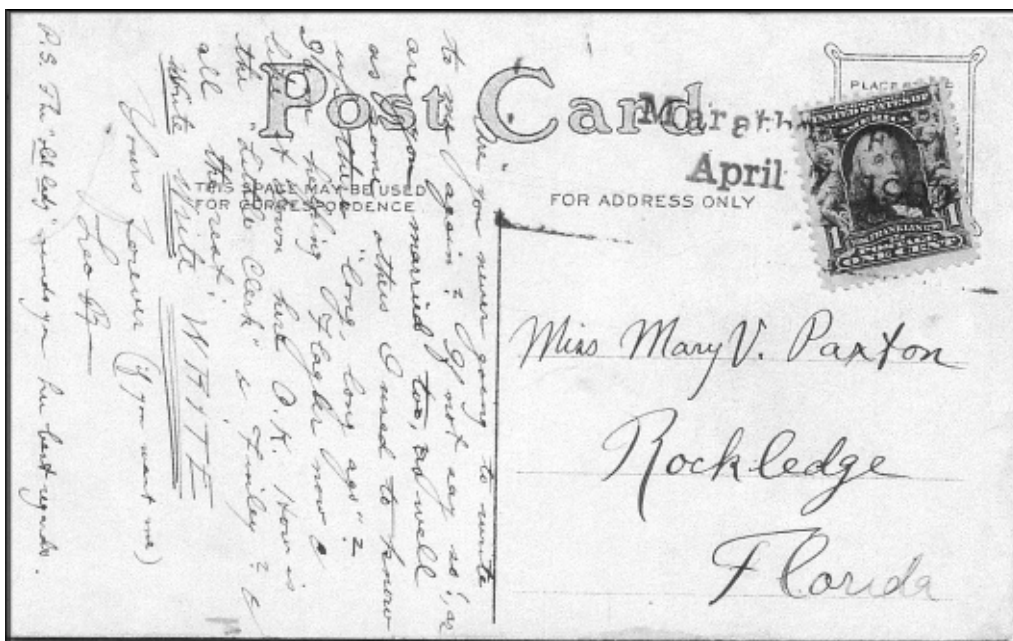 Post Card
THIS SPACE MAY BE USED
FOR CORRESPONDENCE
FOR ADDRESS ONLY
PLACE
Marath
April 7
UNITED STATES OF
AMERICA
1 FRANKLIN 1
ONE CENT
Miss Mary V. Paxton
Rockledge
Florida
you never going to write
to me again? If not say so; or
are you married too, as well
as some others I used to know
up the "long, long ago"?
helping Flagler now &
like it down here O.K. How is
the "Little Clerk" & Finley? &
all the rest; WRITE
Write Write
Yours forever (if you want me)
Leo
P.S. The "old lady" sends you her best regards.